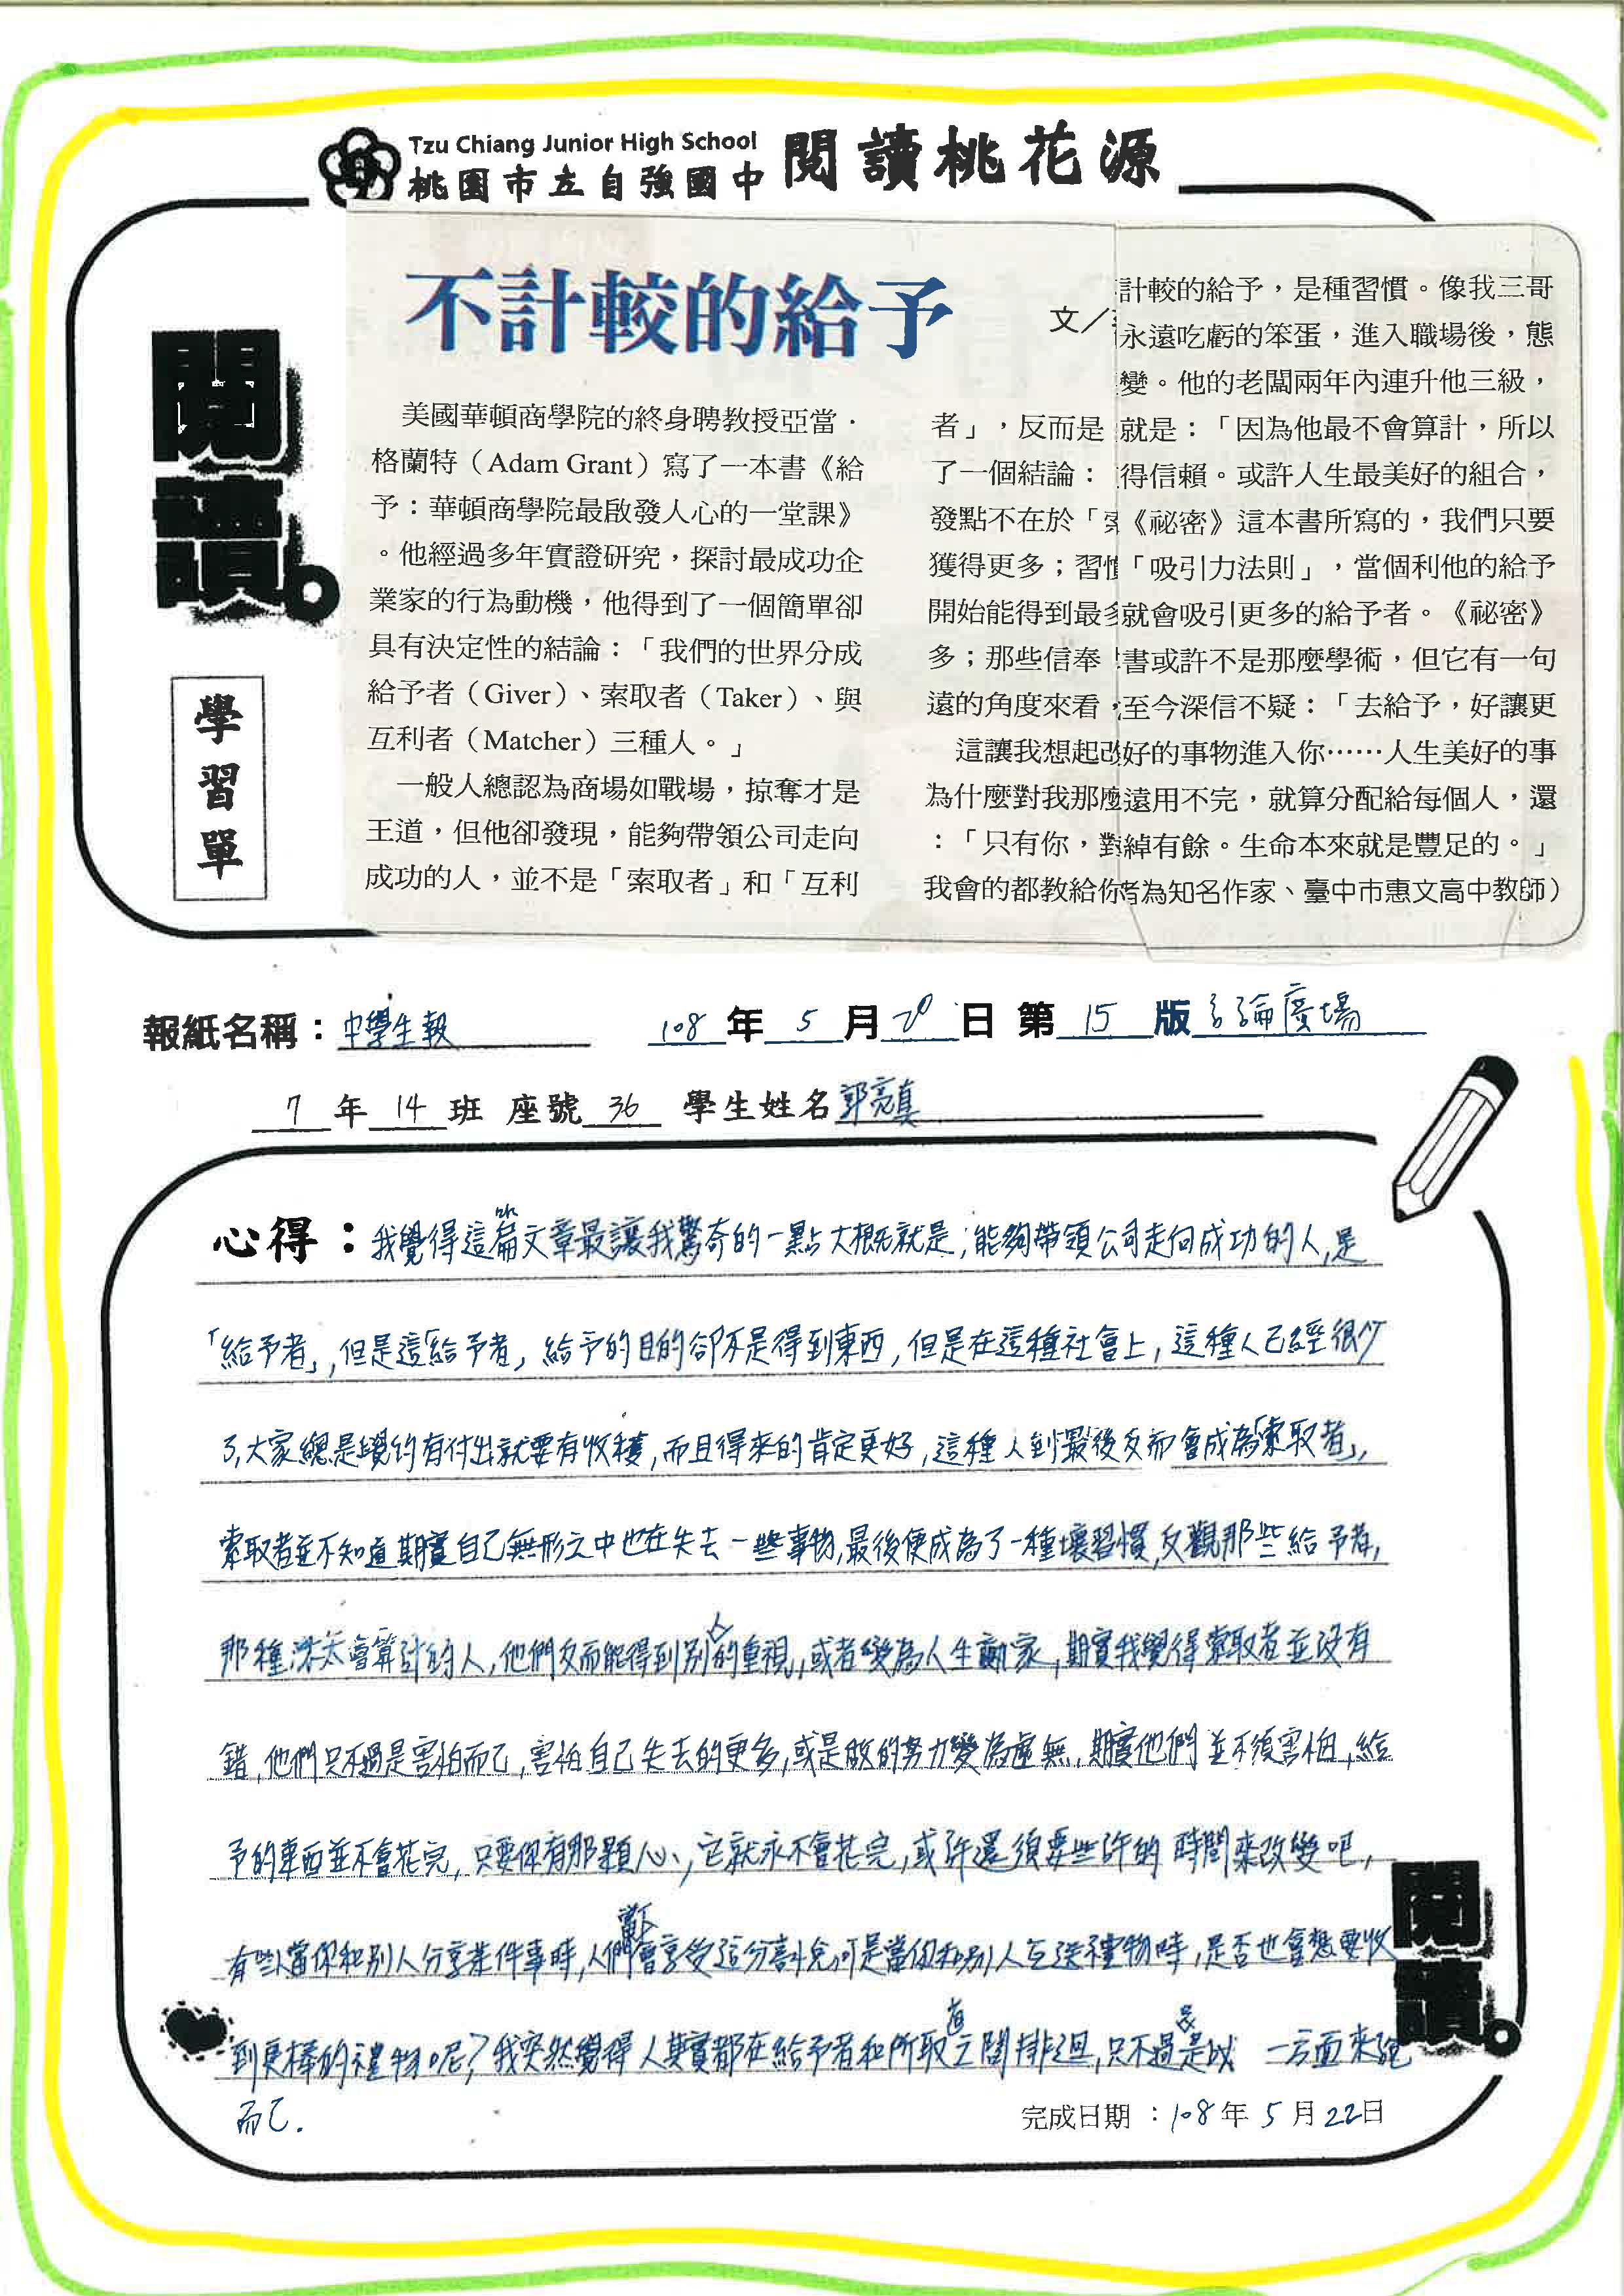 Tzu Chiang Junior High School
桃園市立自強國中
閱讀桃花源
閱讀。
學習單
不計較的給予
文／
美國華頓商學院的終身聘教授亞當．
格蘭特（Adam Grant）寫了一本書《給
予：華頓商學院最啟發人心的一堂課》
。他經過多年實證研究，探討最成功企
業家的行為動機，他得到了一個簡單卻
具有決定性的結論：「我們的世界分成
給予者（Giver）、索取者（Taker）、與
互利者（Matcher）三種人。」
一般人總認為商場如戰場，掠奪才是
王道，但他卻發現，能夠帶領公司走向
成功的人，並不是「索取者」和「互利
者」，反而是
了一個結論：
發點不在於「索
獲得更多；習慣
開始能得到最多
多；那些信奉
遠的角度來看，
這讓我想起改
為什麼對我那麼
：「只有你，對
我會的都教給你
計較的給予，是種習慣。像我三哥
永遠吃虧的笨蛋，進入職場後，態
變。他的老闆兩年內連升他三級，
就是：「因為他最不會算計，所以
得信賴。或許人生最美好的組合，
《祕密》這本書所寫的，我們只要
「吸引力法則」，當個利他的給予
就會吸引更多的給予者。《祕密》
書或許不是那麼學術，但它有一句
至今深信不疑：「去給予，好讓更
好的事物進入你⋯⋯人生美好的事
遠用不完，就算分配給每個人，還
綽有餘。生命本來就是豐足的。」
者為知名作家、臺中市惠文高中教師）
報紙名稱：中學生報 108年5月20日第15版言論廣場
7年14班 座號36 學生姓名郭亮真
心得：我覺得這篇文章最讓我驚奇的一點大概就是；能夠帶領公司走向成功的人，是
「給予者」，但是這「給予者，給予的目的卻不是得到東西，但是在這種社會上，這種人已經很少
了，大家總是覺的有付出就要有收穫，而且得來的肯定更好，這種人到最後反而會成為「索取者」，
索取者並不知道其實自己無形之中也在失去一些事物，最後便成為了一種壞習慣，反觀那些給予者，
那種不太會算計的人，他們反而能得到別人的重視，或者變為人生贏家，其實我覺得索取者並沒有
錯，他們只不過是害怕而已，害怕自己失去的更多，或是做的努力變為虛無，其實他們並不須害怕，給
予的東西並不會花完，只要你有那顆心，它就永不會花完，或許還須要些許的時間來改變吧，
有些當你和別人分享某件事時，人們當下會享受這分喜悅，可是當你和別人互送禮物時，是否也會想要收
到更棒的禮物呢？我突然覺得人其實都在給予者和所取者之間排迴，只不過是以一方面來說
而已．
完成日期：108年5月22日
閱讀。